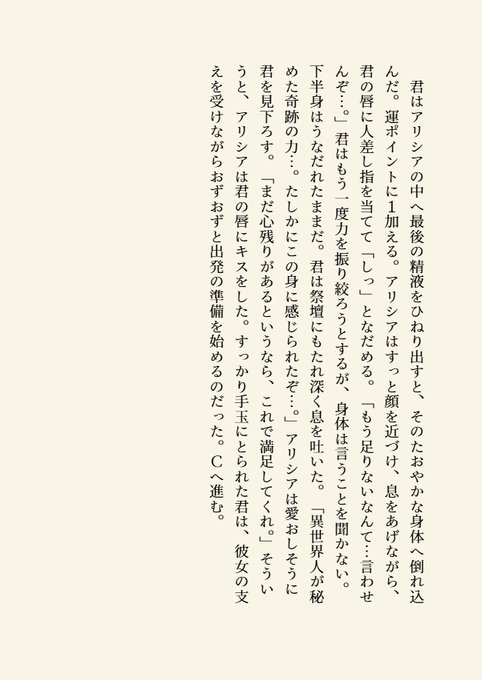 君はアリシアの中へ最後の精液をひねり出すと、そのたおやかな身体へ倒れ込
んだ。運ポイントに１加える。アリシアはすっと顔を近づけ、息をあげながら、
君の唇に人差し指を当てて「しっ」となだめる。「もう足りないなんて…言わせ
んぞ…。」君はもう一度力を振り絞ろうとするが、身体は言うことを聞かない。
下半身はうなだれたままだ。君は祭壇にもたれ深く息を吐いた。「異世界人が秘
めた奇跡の力…。たしかにこの身に感じられたぞ…。」アリシアは愛おしそうに
君を見下ろす。「まだ心残りがあるというなら、これで満足してくれ。」そうい
うと、アリシアは君の唇にキスをした。すっかり手玉にとられた君は、彼女の支
えを受けながらおずおずと出発の準備を始めるのだった。Ｃへ進む。